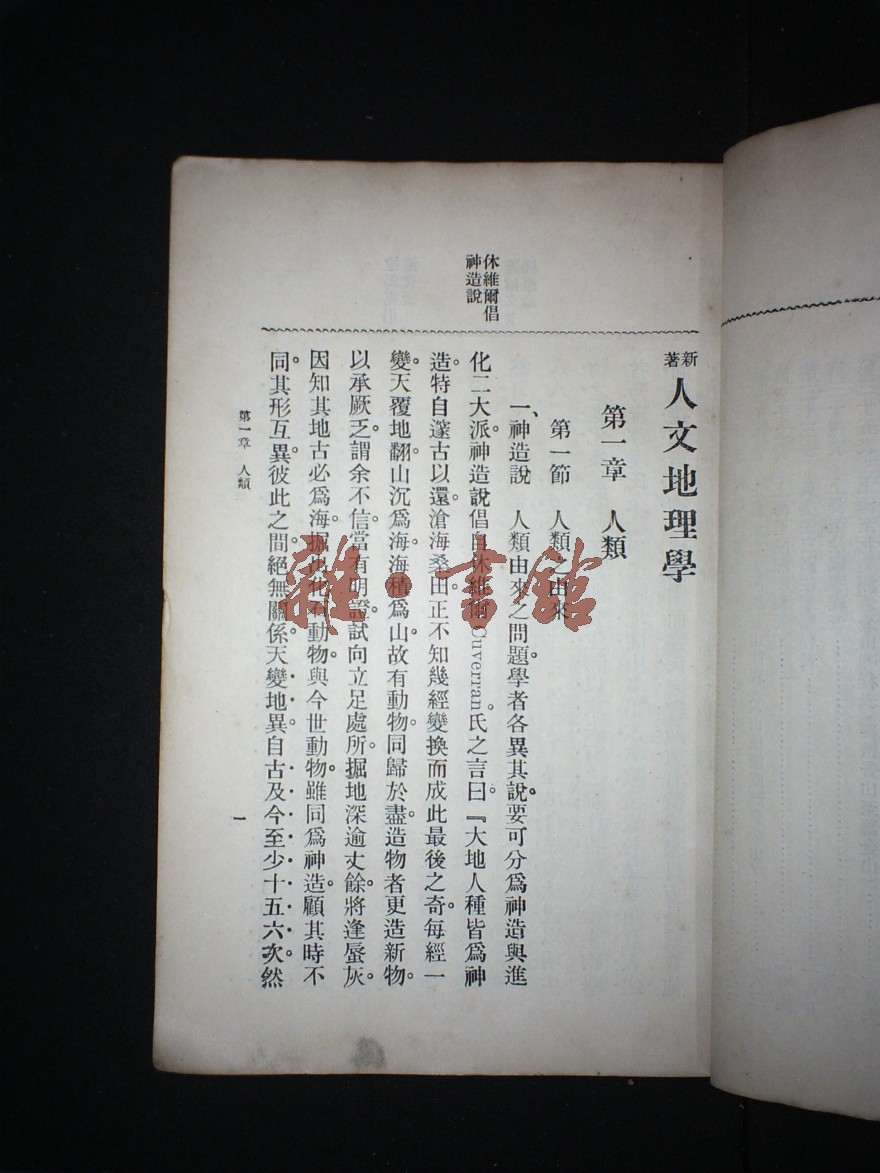 新著 人文地理學
第一章　人類
第一節　人類之由來
一、神造說　人類由來之問題。學者各異其說。要可分爲神造與進
化二大派。神造說倡自休維爾Cuverran氏之言曰。『大地人種皆爲神
造。特自邃古以還。滄海桑田。正不知幾經變換而成此最後之奇。每經一
變。天覆地翻。山沉爲海。海積爲山。故有動物。同歸於盡。造物者更造新物。
以承厥乏。謂余不信。當有明證。試向立足處所。掘地深逾丈餘。將逢蜃灰。
因知其地古必爲海。掘出化石動物。與今世動物。雖同爲神造。顧其時不
同。其形互異。彼此之間。絕無關係。天變地異。自古及今至少十五六次。然
休維爾倡
神造說
第一章　人類
一
雜·書館